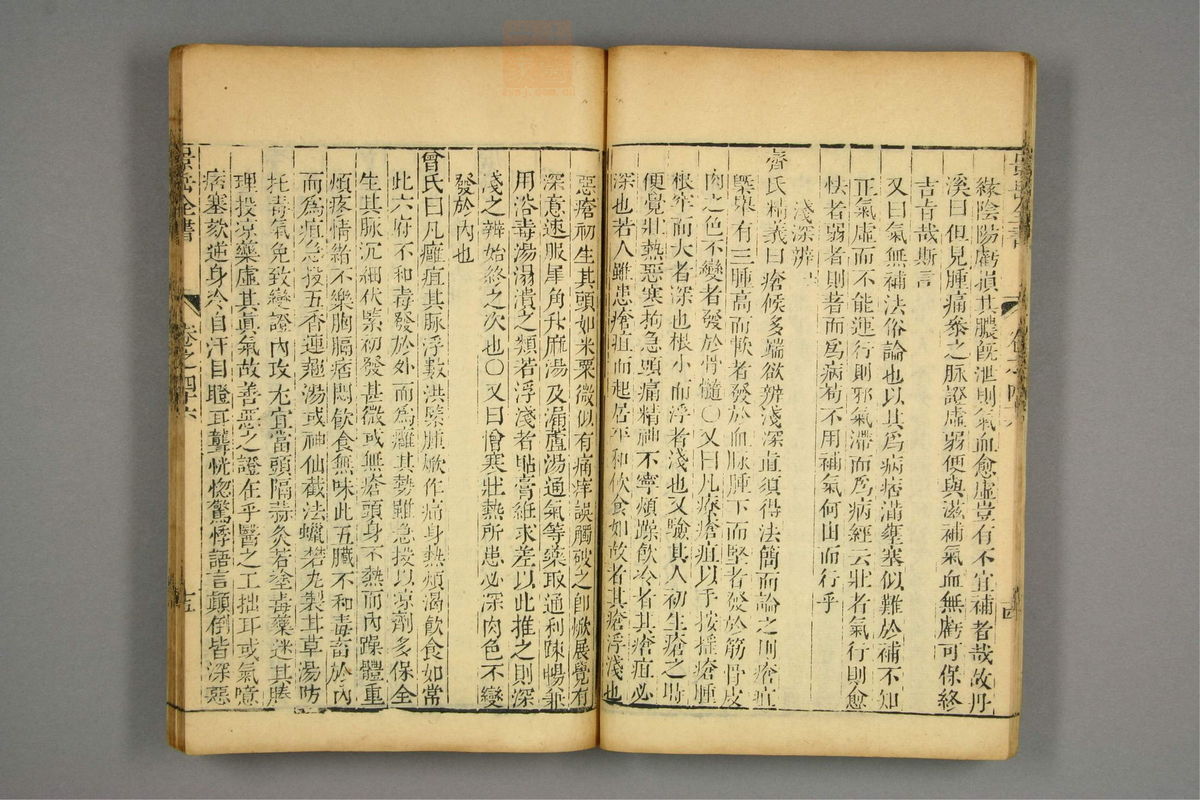 緣陰陽虧損其膿既泄則氣血愈虛豈有不宜補者哉故丹
溪曰但見腫痛參之脉證虛弱便與滋補氣血無虧可保終
吉旨哉斯言
又曰氣無補法俗論也以其為病痞滿壅塞似難於補不知
正氣虛而不能運行則邪氣滯而為病經云壯者氣行則愈
怯者弱者則著而為病苟不用補氣何由而行乎
淺深辨
齊氏精義曰瘡候多端欲辨淺深直須得法簡而論之則瘡疽
槩舉有三腫高而軟者發於血脉腫下而堅者發於筋骨皮
肉之色不變者發於骨髓〇又曰凡療瘡疽以手按搖瘡腫
根牢而大者深也根小而浮者淺也又驗其人初生瘡之時
便覺壯熱惡寒拘急頭痛精神不寧煩躁飲冷者其瘡疽必
深也若人雖患瘡疽而起居平和飲食如故者其瘡浮淺也
惡瘡初生其頭如米粟微似有痛痒誤觸破之卽焮展覺有
深意速服犀角升麻湯及漏蘆湯通氣等藥取通利踈暢兼
用浴毒湯溻漬之類若浮淺者貼膏維求差以此推之則深
淺之辨始終之次也〇又曰憎寒壯熱所患必深肉色不變
發於內也
曾氏曰凡癰疽其脉浮數洪緊腫焮作痛身熱煩渴飲食如常
此六府不和毒發於外而為癰其勢雖急投以凉劑多保全
生其脉沉細伏緊初發甚微或無瘡頭身不熱而內躁體重
煩疼情緒不樂胸膈痞悶飲食無味此五臟不和毒畜於內
而為疽急投五香連翹湯或神仙截法蠟礬丸製甘草湯防
托毒氣免致變證內攻尤宜當頭隔蒜灸若塗毒藥迷其腠
理投凉藥虛其眞氣故善惡之證在乎醫之工拙耳或氣噫
痞塞欬逆身冷自汗目瞪耳聾恍惚驚悸語言顛倒皆深惡
景岳全書
卷之四十六
十四
景岳全書
卷之四十六
十五